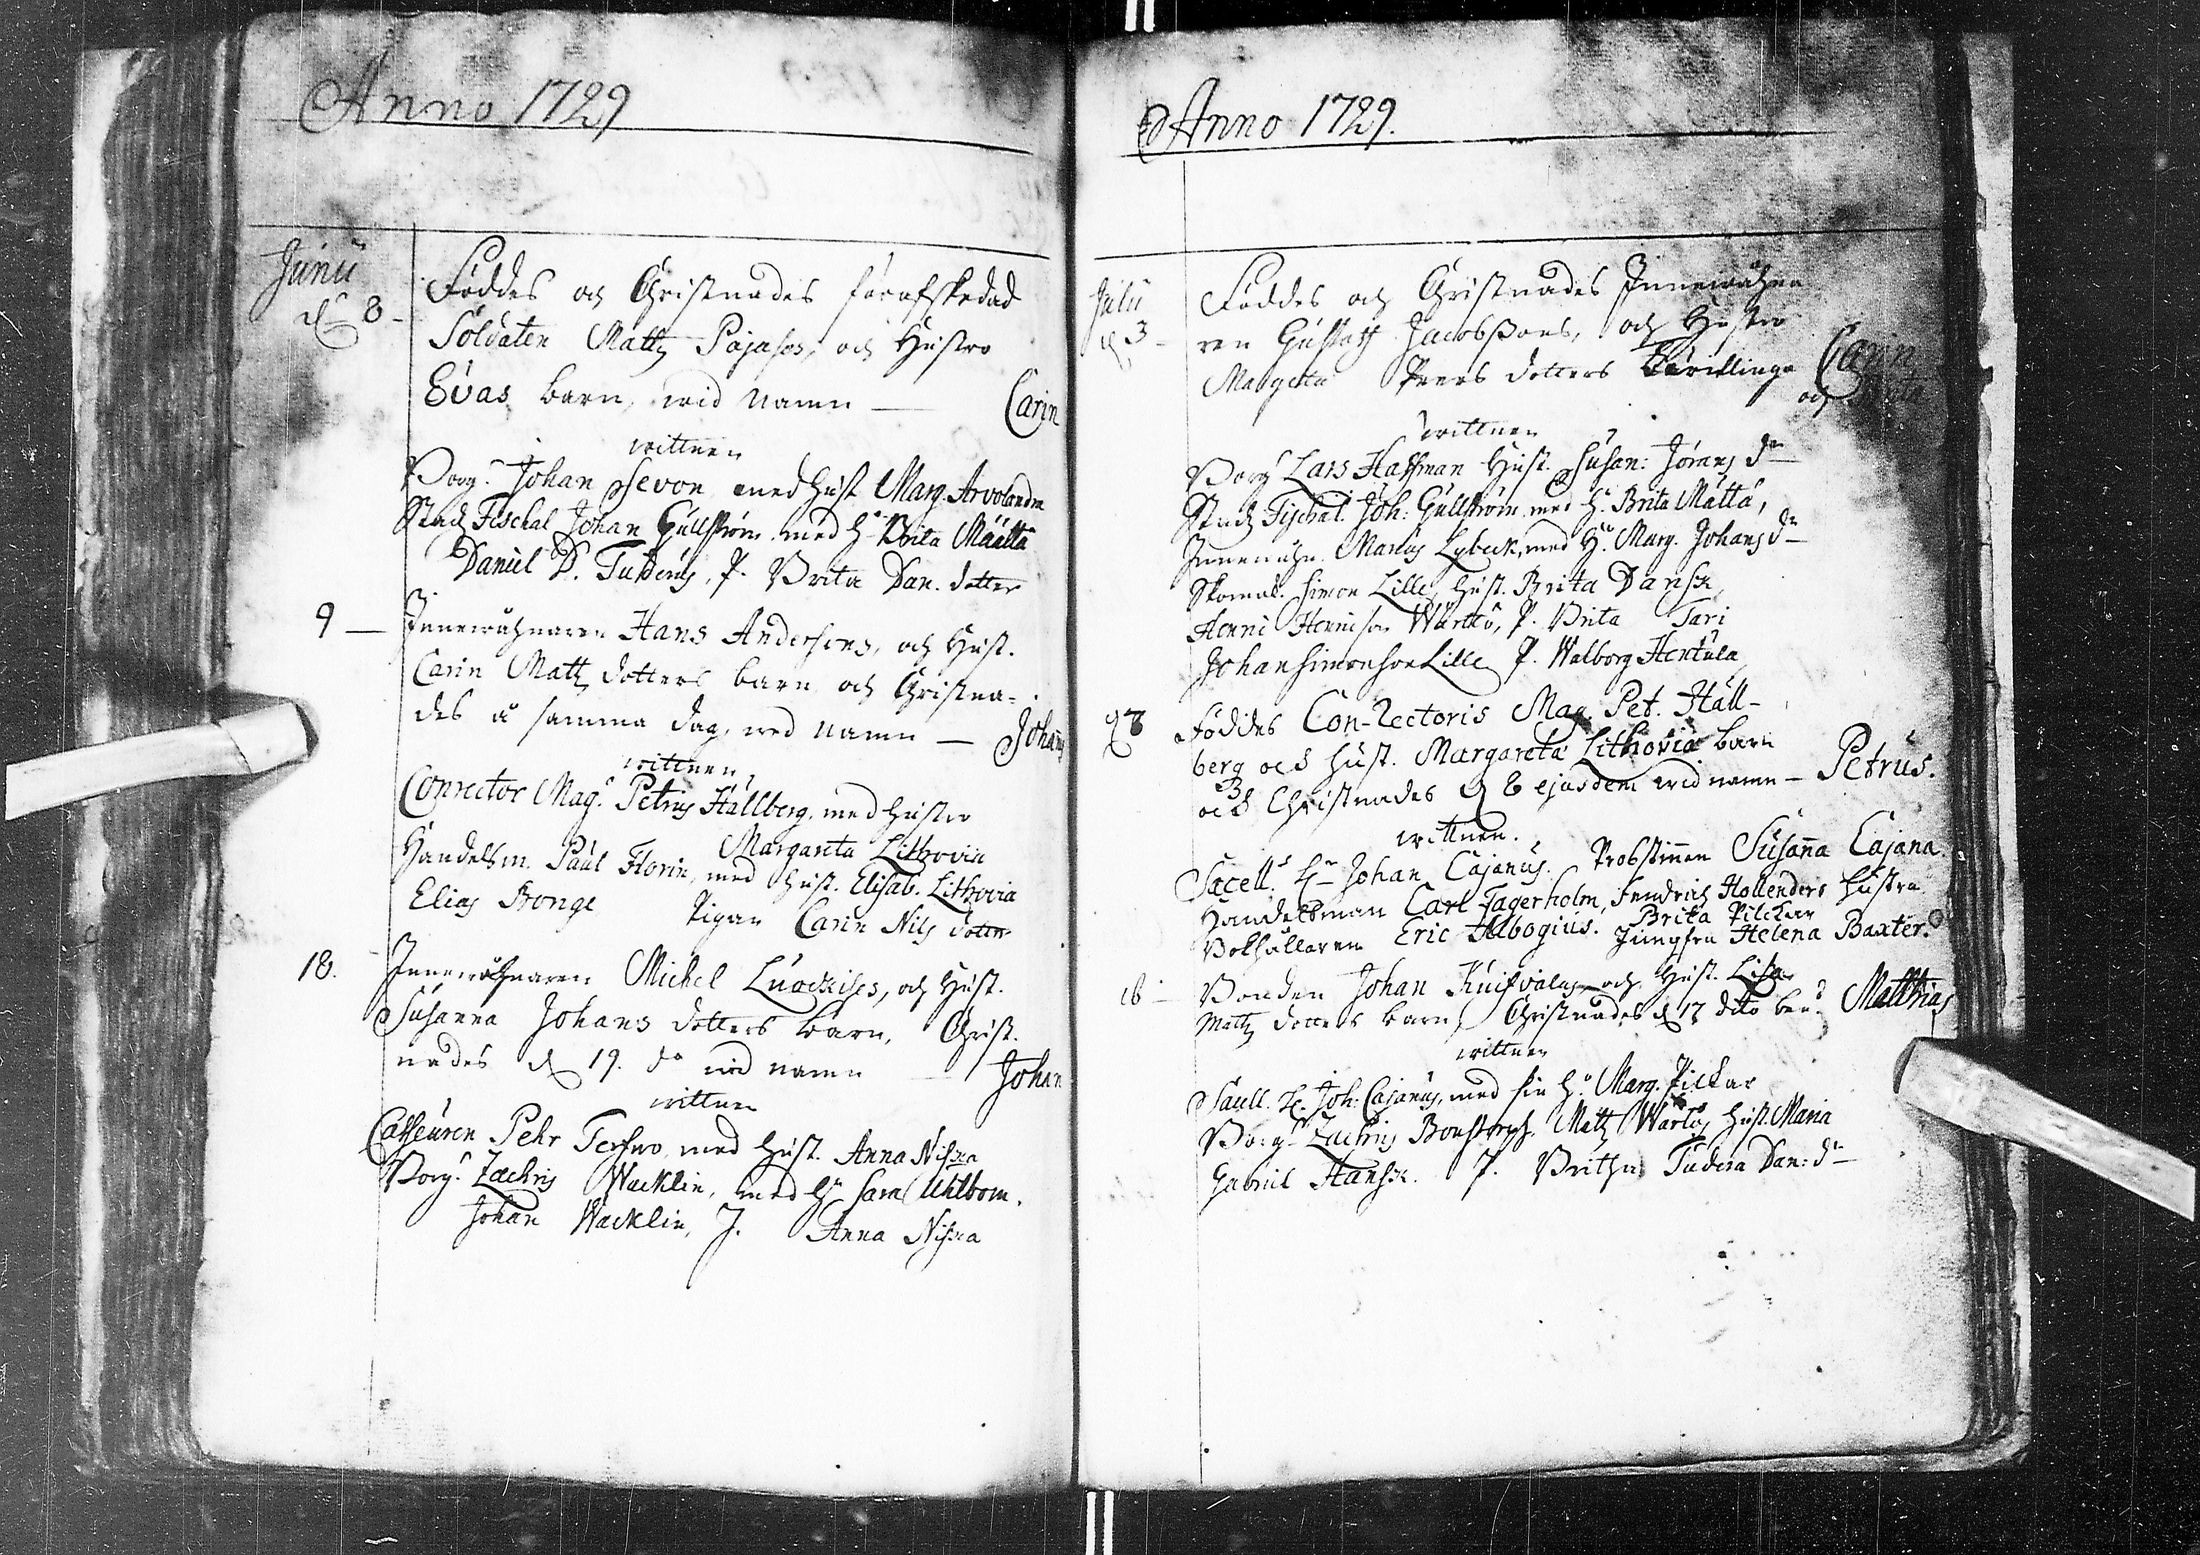 Anno 1729
Junii
d. 8 - Föddes och Christnades förafskedad
Soldaten Mattz Pajasos, och Hustro
Evas barn, wid namn — Carin
wittnen
Borg. Johan Sevon med hust. Marg. Arvolandra
Stads Fischal Johan Gullström med h. Brita Määttä
Daniel D. Tuderus, P. Brita Dan. dotter
9 — Innewåhnaren Hans Andersons, och Hust.
Carin Mattz dotters barn och Christna-
des å samma dag, wid namn — Johan
wittnen
Conrector Mag. Petrus Hällberg, med hustro
Margareta Lithovia
Handelsm. Paul Florin, med hust. Elisab. Lithovia
Elias Bonge Pigan Carin Nils dotter
18. Innewåhnaren Michel, och Hust.
Susanna Johans dotters barn, Christ-
nades d 19. do wid namn Johan
wittnen
Pehr Terfwo, med hust. Anna Niska
Borg. Zachris Wacklin, med h. Sara Uhlbom.
Johan Wacklin, J. Anna Niska
Anno 1729.
Julii
d. 3 - Föddes och Christnades Innewåhna-
ren Gustaff Jacobssons, och Hustro
Margeta Peers dotters Tvillingar Carin
och Brita
wittnen
Borg. Lars Haffman Hust. Susan: Jörans dr
Stads Fischal. Joh: Gullström med h. Brita Määttä,
Innewåhn. Marcus Lybeck, med H. Marg. Johans dr
Skomak. Simon Lille, hust. Brita Dansk
Henric Henricson Wärttö, P. Brita Tari
Johan Simonson Lille, P. Walborg Hentula
8 Föddes Con-Rectoris Mag. Pet. Häll-
berg och hust. Margareta Lithovia barn
och Christnades d 8 ejusdem wid namn — Petrus.
wittnen.
Sacell. Hr Johan Cajanus. Probstinnan Susanna Cajana.
Handelsman Carl Fagerholm, Fendrich Hollenders hustru
Brita Pilckar
Bokhållaren Eric Albogius. Jungfru Helena Baxter.
16 - Bonden Johan och Hust. Lisa
Mattz dotters barn, Christnades d 17 dito ben. Matthias
wittnen
Sacell. H. Joh: Cajanus, med sin h. Marg. Pilckar
Borg. Zachris Bonstorph. Matz Wärtös hust. Maria
Gabriel Hansk. P. Britha Tudera Dan: dr